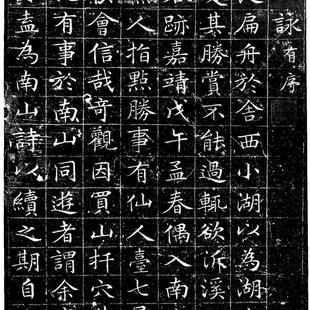 詠有序
扁舟於舍西小湖以為湖
其勝賞不能過輒欲泝溪
跡嘉靖戊午孟春偶入南
人指點勝事有仙人臺七
會信哉奇觀因買山扦穴
有事於南山同遊者謂余
盍為南山詩以續之期自